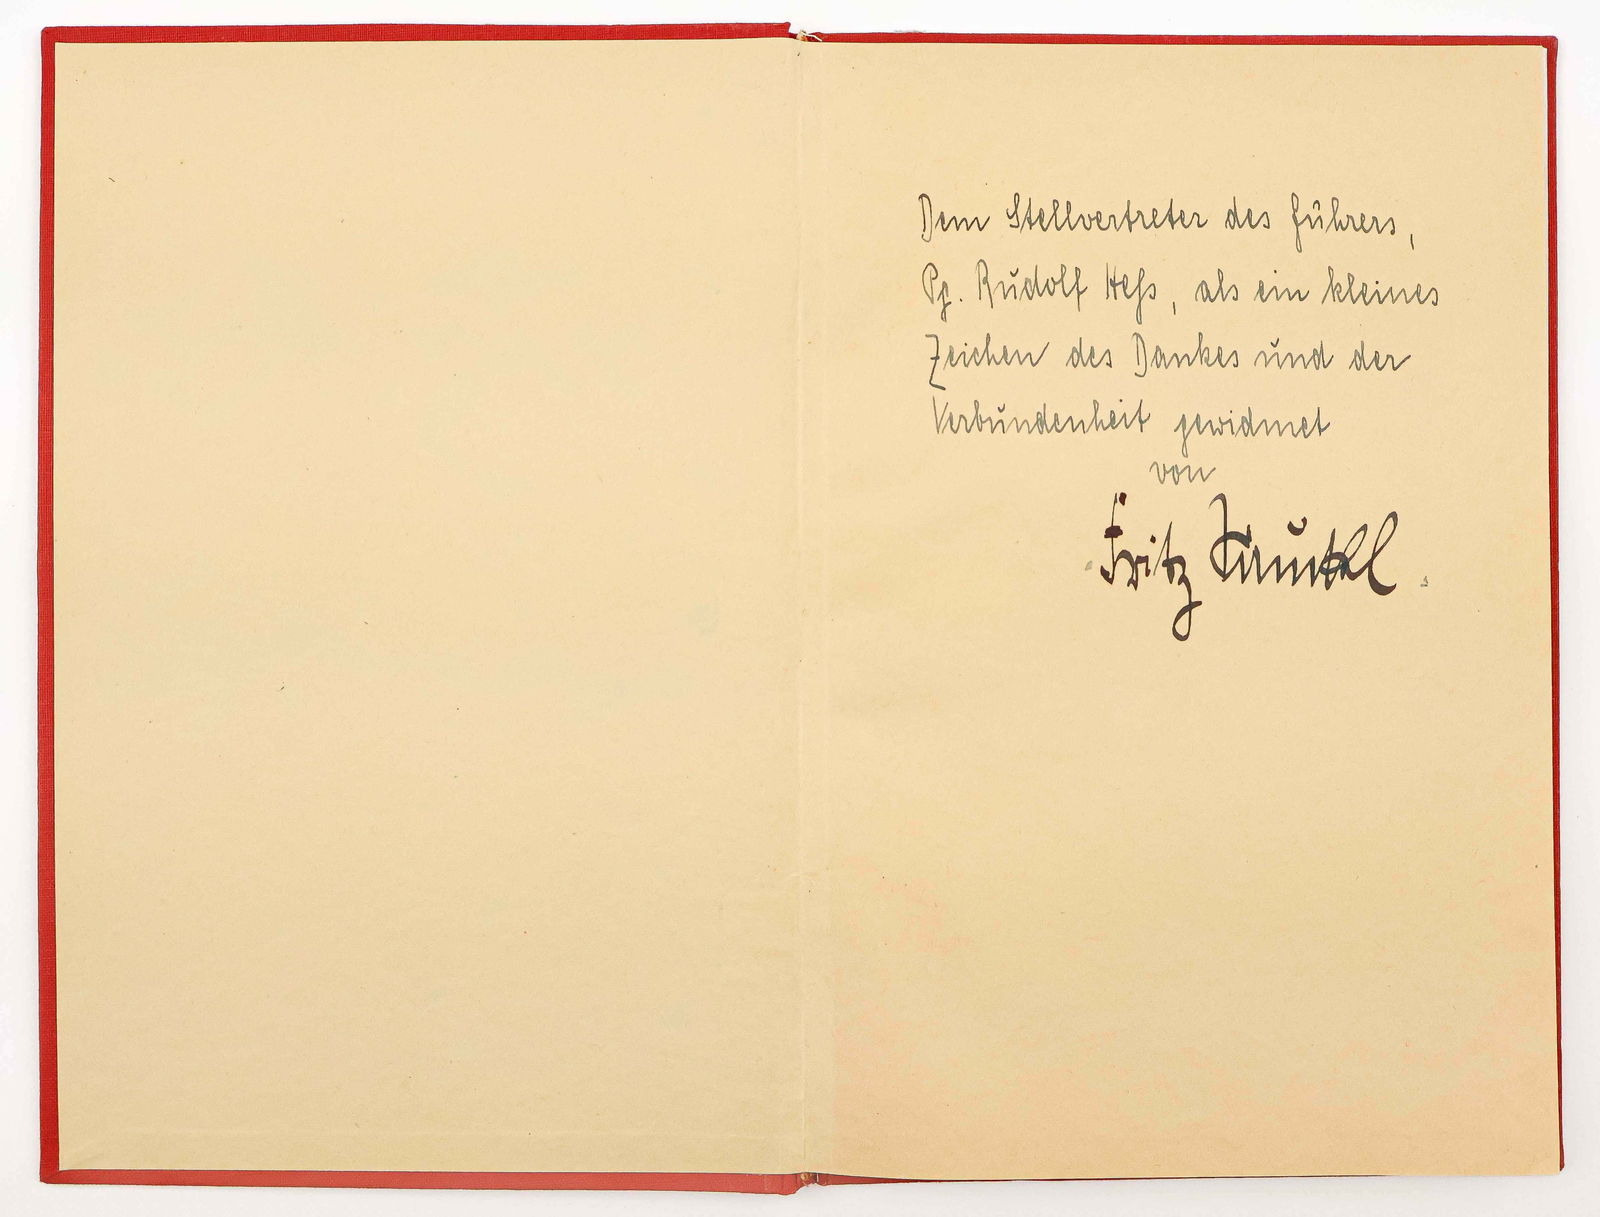 Dem Stellvertreter des Führers,
Pg. Rudolf Heß, als ein kleines
Zeichen des Dankes und der
Verbundenheit gewidmet
von
Fritz Sauckel.